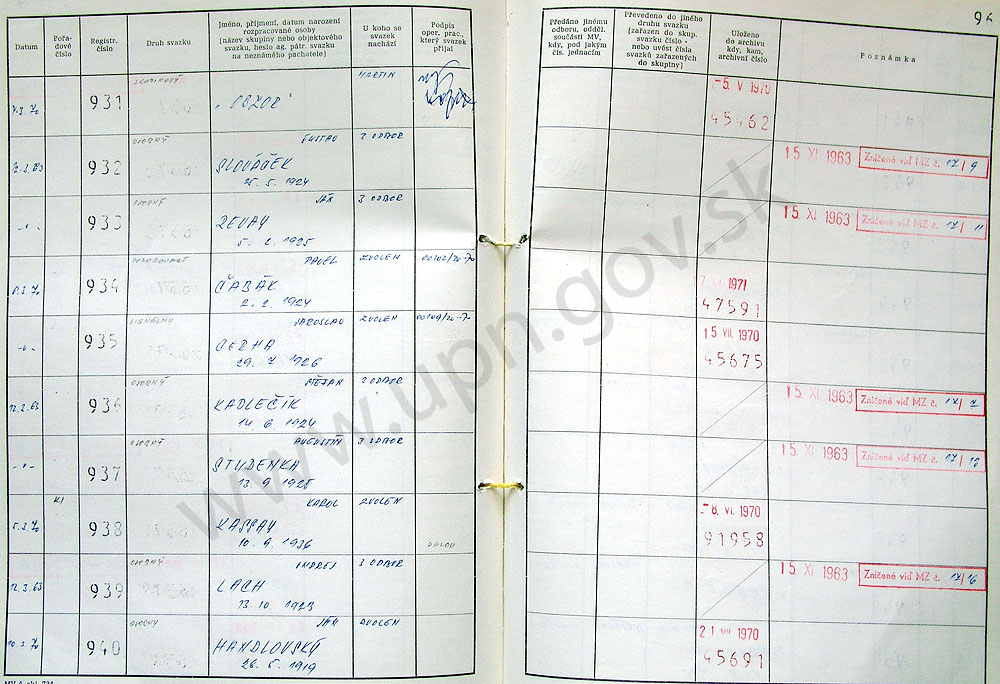 96
Datum
Pořadové číslo
Registr. číslo
Druh svazku
Jméno, příjmení, datum narození
rozpracované osoby
[název skupiny nebo objektového
svazku, heslo ag. pátr. svazku
na neznámého pachatele]
U koho se
svazek
nachází
Podpis
oper. prac.,
který svazek
přijal
Předáno jinému
odboru, odděl.
součásti MV,
kdy, pod jakým
čís. jednacím
Převedeno do jiného
druhu svazku
[zařazen do skup.
- nebo uvést čísla
svazků zařazených
do skupiny]
Uloženo
do archivu
kdy, kam,
archivní číslo
Poznámka
931 "OBZOR" MARTIN
-5. V 1970
45462
12.3.63 932 OSOBNÝ GUSTAV 3 ODBOR
SLOVÁČEK
1924
15 XI. 1963 Zničené viď MZ č. 17/9
-"- 933 OSOBNÝ JÁN 3 ODBOR
ZEVAY
5. 2. 1925
15 XI. 1963 Zničené viď MZ č. 17/11
934 POZOROVACÍ PAVEL ZVOLEN 00102/20-70
ČABÁK
2. 2. 1924
1971
47591
-"- 935 SIGNÁLNY JAROSLAV ZVOLEN
CERHA
29. 7. 1926
15 VII. 1970
45675
12.3.63 936 OSOBNÝ ŠTEFAN 3 ODBOR
KADLEČÍK
14. 6. 1924
15. XI. 1963 Zničené viď MZ č. 17/7
-"- 937 OSOBNÝ AUGUSTÍN 3 ODBOR
STUDENKA
13. 9. 1925
15 XI. 1963 Zničené viď MZ č.
5.3.70 KI 938 KAROL ZVOLEN
KASSAY
10. 9. 1936
-8. VI. 1970
91958
12.3.63 939 OSOBNÝ ANDREJ 3 ODBOR
LACH
13. 10. 1923
15 XI. 1963 Zničené viď MZ č. 17/16
940 OSOBNÝ JÁN ZVOLEN
HANDLOVSKÝ
26. 5. 1919
21 VIII 1970
45691
www.upn.gov.sk